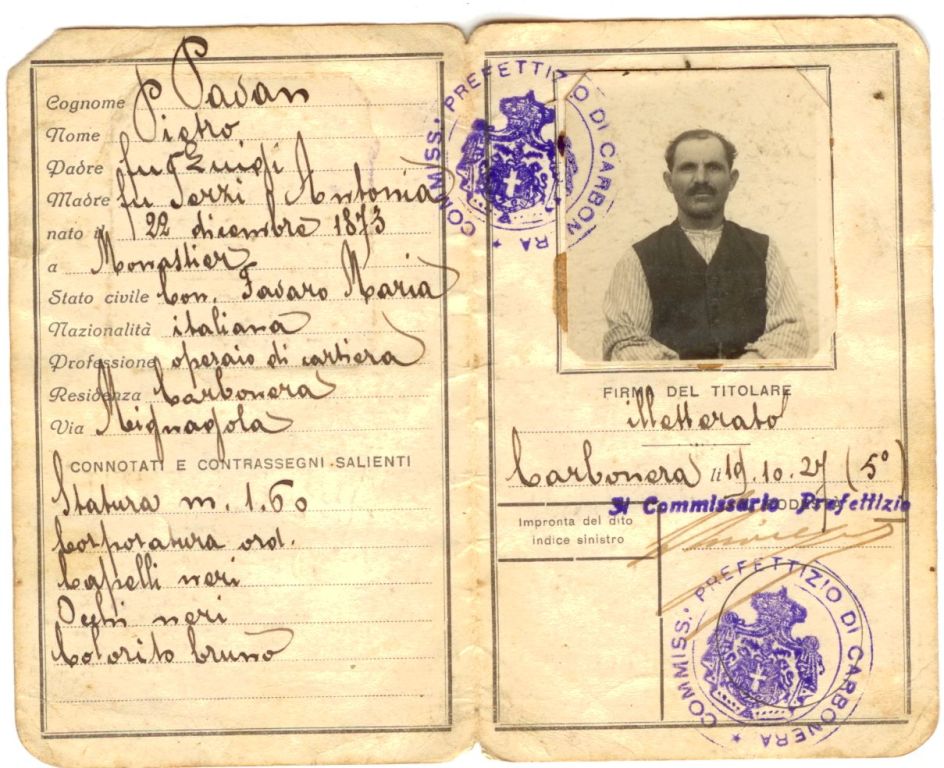 Cognome Padan
Nome Pietro
Padre fu Luigi
Madre fu Terzi Antonia
nato il 22 dicembre 1873
a Monastier
Stato civile Con. Favaro Maria
Nazionalità italiana
Professione operaio di cartiera
Residenza Carbonera
Via Mignagola
CONNOTATI E CONTRASSEGNI SALIENTI
Statura m. 1.60
Corporatura ord.
Capelli neri
Occhi neri
Colorito bruno
COMMISS.' PREFETTIZIO DI CARBONERA
FIRMA DEL TITOLARE
illetterato
Carbonera li 19.10.27 (5°)
Il Commissario Prefettizio
Impronta del dito
indice sinistro
COMMISS.' PREFETTIZIO DI CARBONERA